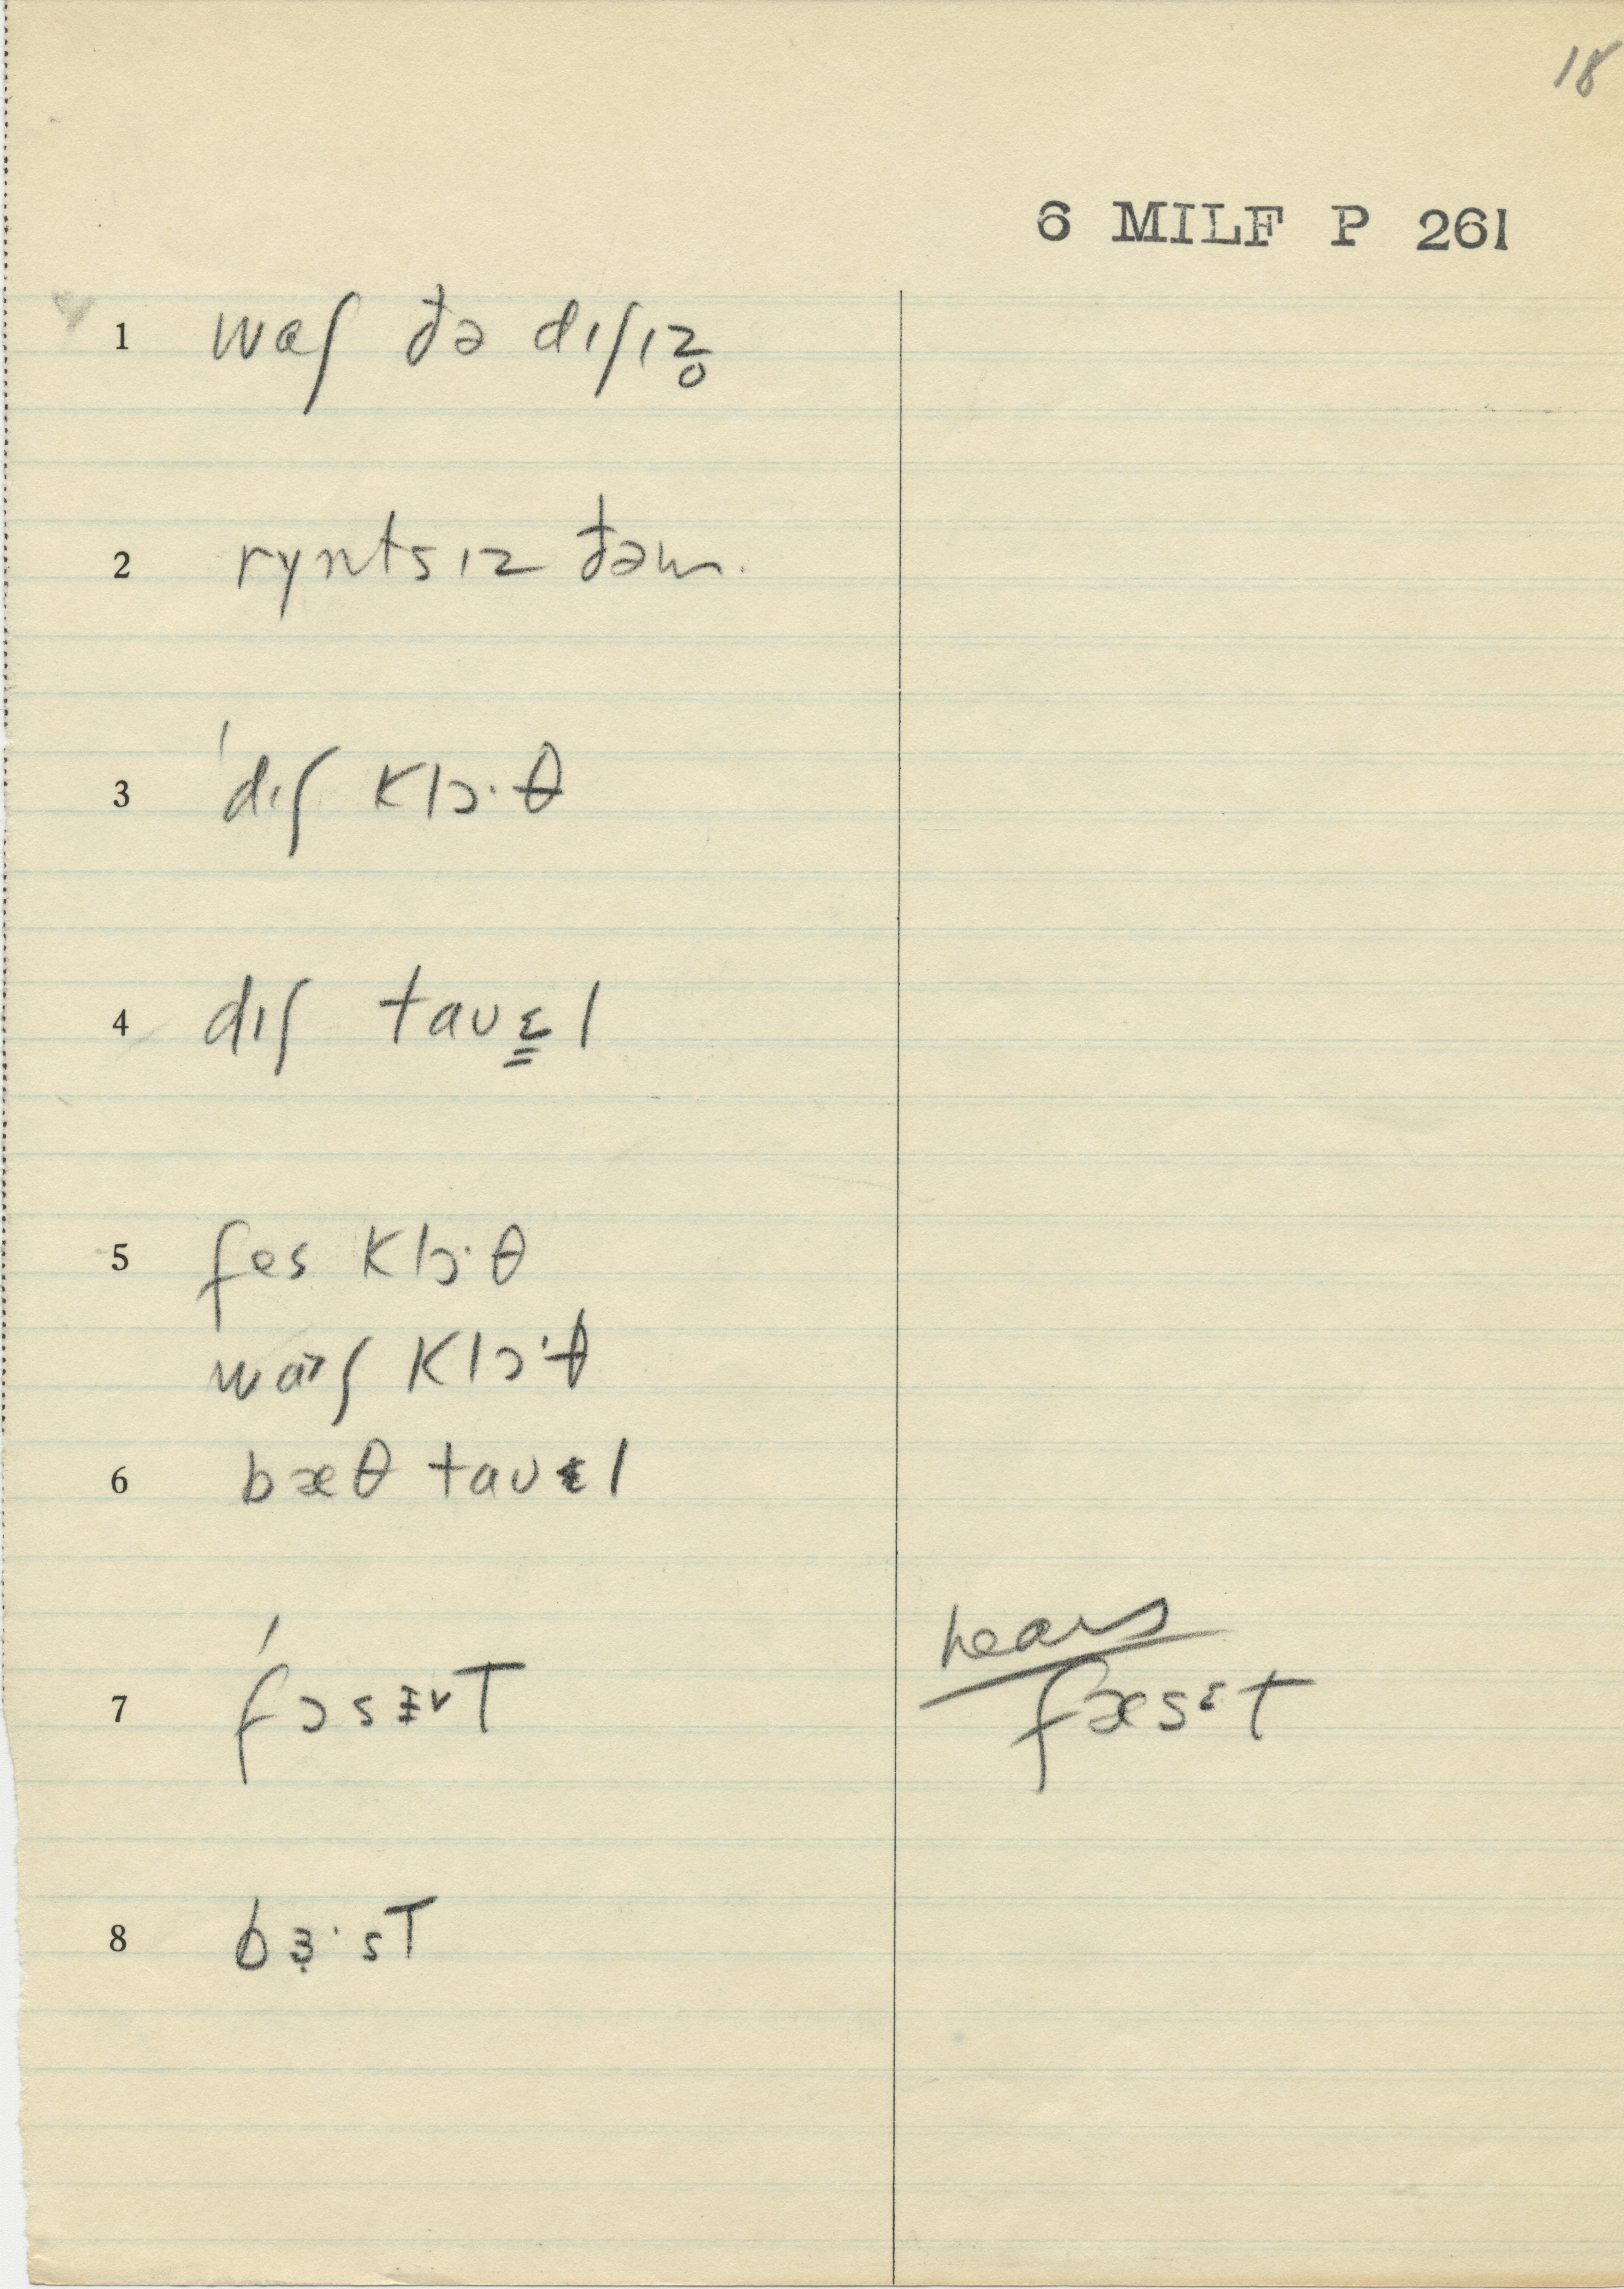 18
6 MILF P 261
1 waʃ ðə dıʃız̥
2 ryntsız ðəm.
3 ˈdıʃ klɔ·θ
4 dıʃ tauɛ̳l
5 fes klɔ·θ
waɜʃ klɔ·θ
6 bæθ tauɛl
7 ˈfɔsɪ̵vT hears fæsɛt
8 bɜ̣·sT